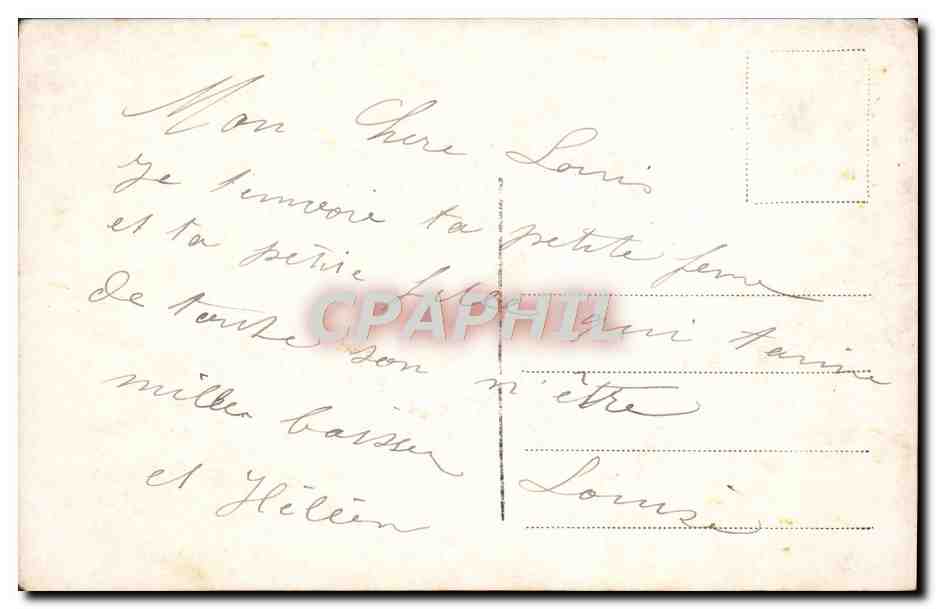 Mon Chere Louis
Je t'envoie ta petite feme
et ta petite qui t'aime
de toute son n'être
mille baisser Louise
et Hélèn
CPAPHIL